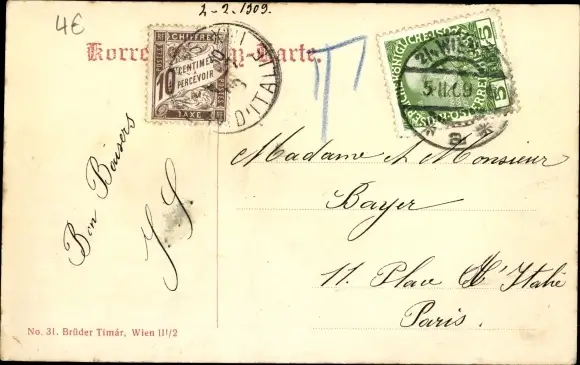 4€
2-2.1909.
Korrespondenz-Karte.
CHIFFRE
10 CENTIMES
À PERCEVOIR
TAXE
D'ITALIE
T
5 5
21. WIEN
5.II.09
a
Bon Baisers
J. J.
Madame & Monsieur
Bayer
11. Place d'Italie
Paris.
No. 31. Brüder Timár, Wien III/2